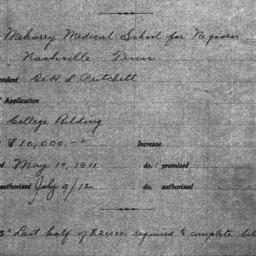 Meharry Medical School for Negroes
Nashville Tenn
ndent H S Pritchett
f Application
College Building
$10,000.- Increase
d May 19, 1911 do. : promised
authorized July 9/12 do. authorized
Last half of $20000 required to complete